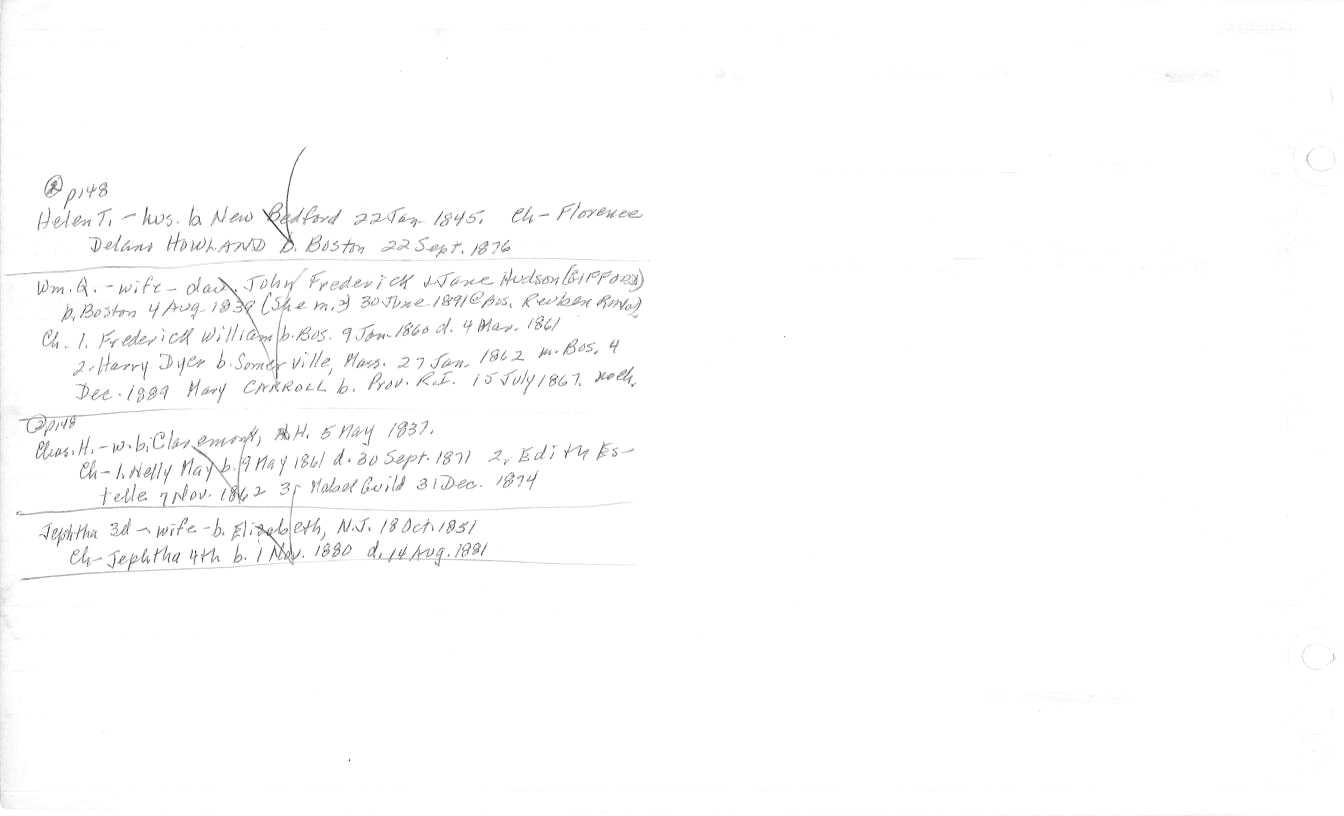 ② p148
Helen T. - hus. b. New Bedford 22 Jan. 1845. Ch - Florence
Delano HOWLAND b. Boston 22 Sept. 1876
Wm. Q. - wife - dau. John Frederick & Jane Hudson (GIFFORD)
b. Boston 4 Aug. 1839 (She m. 2) 30 June 1891 @ Bos. Reuben
Ch. 1. Frederick William b. Bos. 9 Jan. 1860 d. 4 Mar. 1861
2. Harry Dyer b. Somerville, Mass. 27 Jan. 1862 m. Bos. 4
Dec. 1889 Mary CARROLL b. Prov. R.I. 15 July 1867. no ch.
② p148
Chas. H. - w. b. Claremont, N.H. 5 May 1837.
Ch - 1. Nelly May b. 9 May 1861 d. 30 Sept. 1871 2. Edith Es-
telle 7 Nov. 1862 3. Mabel Guild 31 Dec. 1874
Jephtha 3d - wife - b. Elizabeth, N.J. 18 Oct. 1851
Ch - Jephtha 4th b. 1 Nov. 1880 d. 14 Aug. 1881